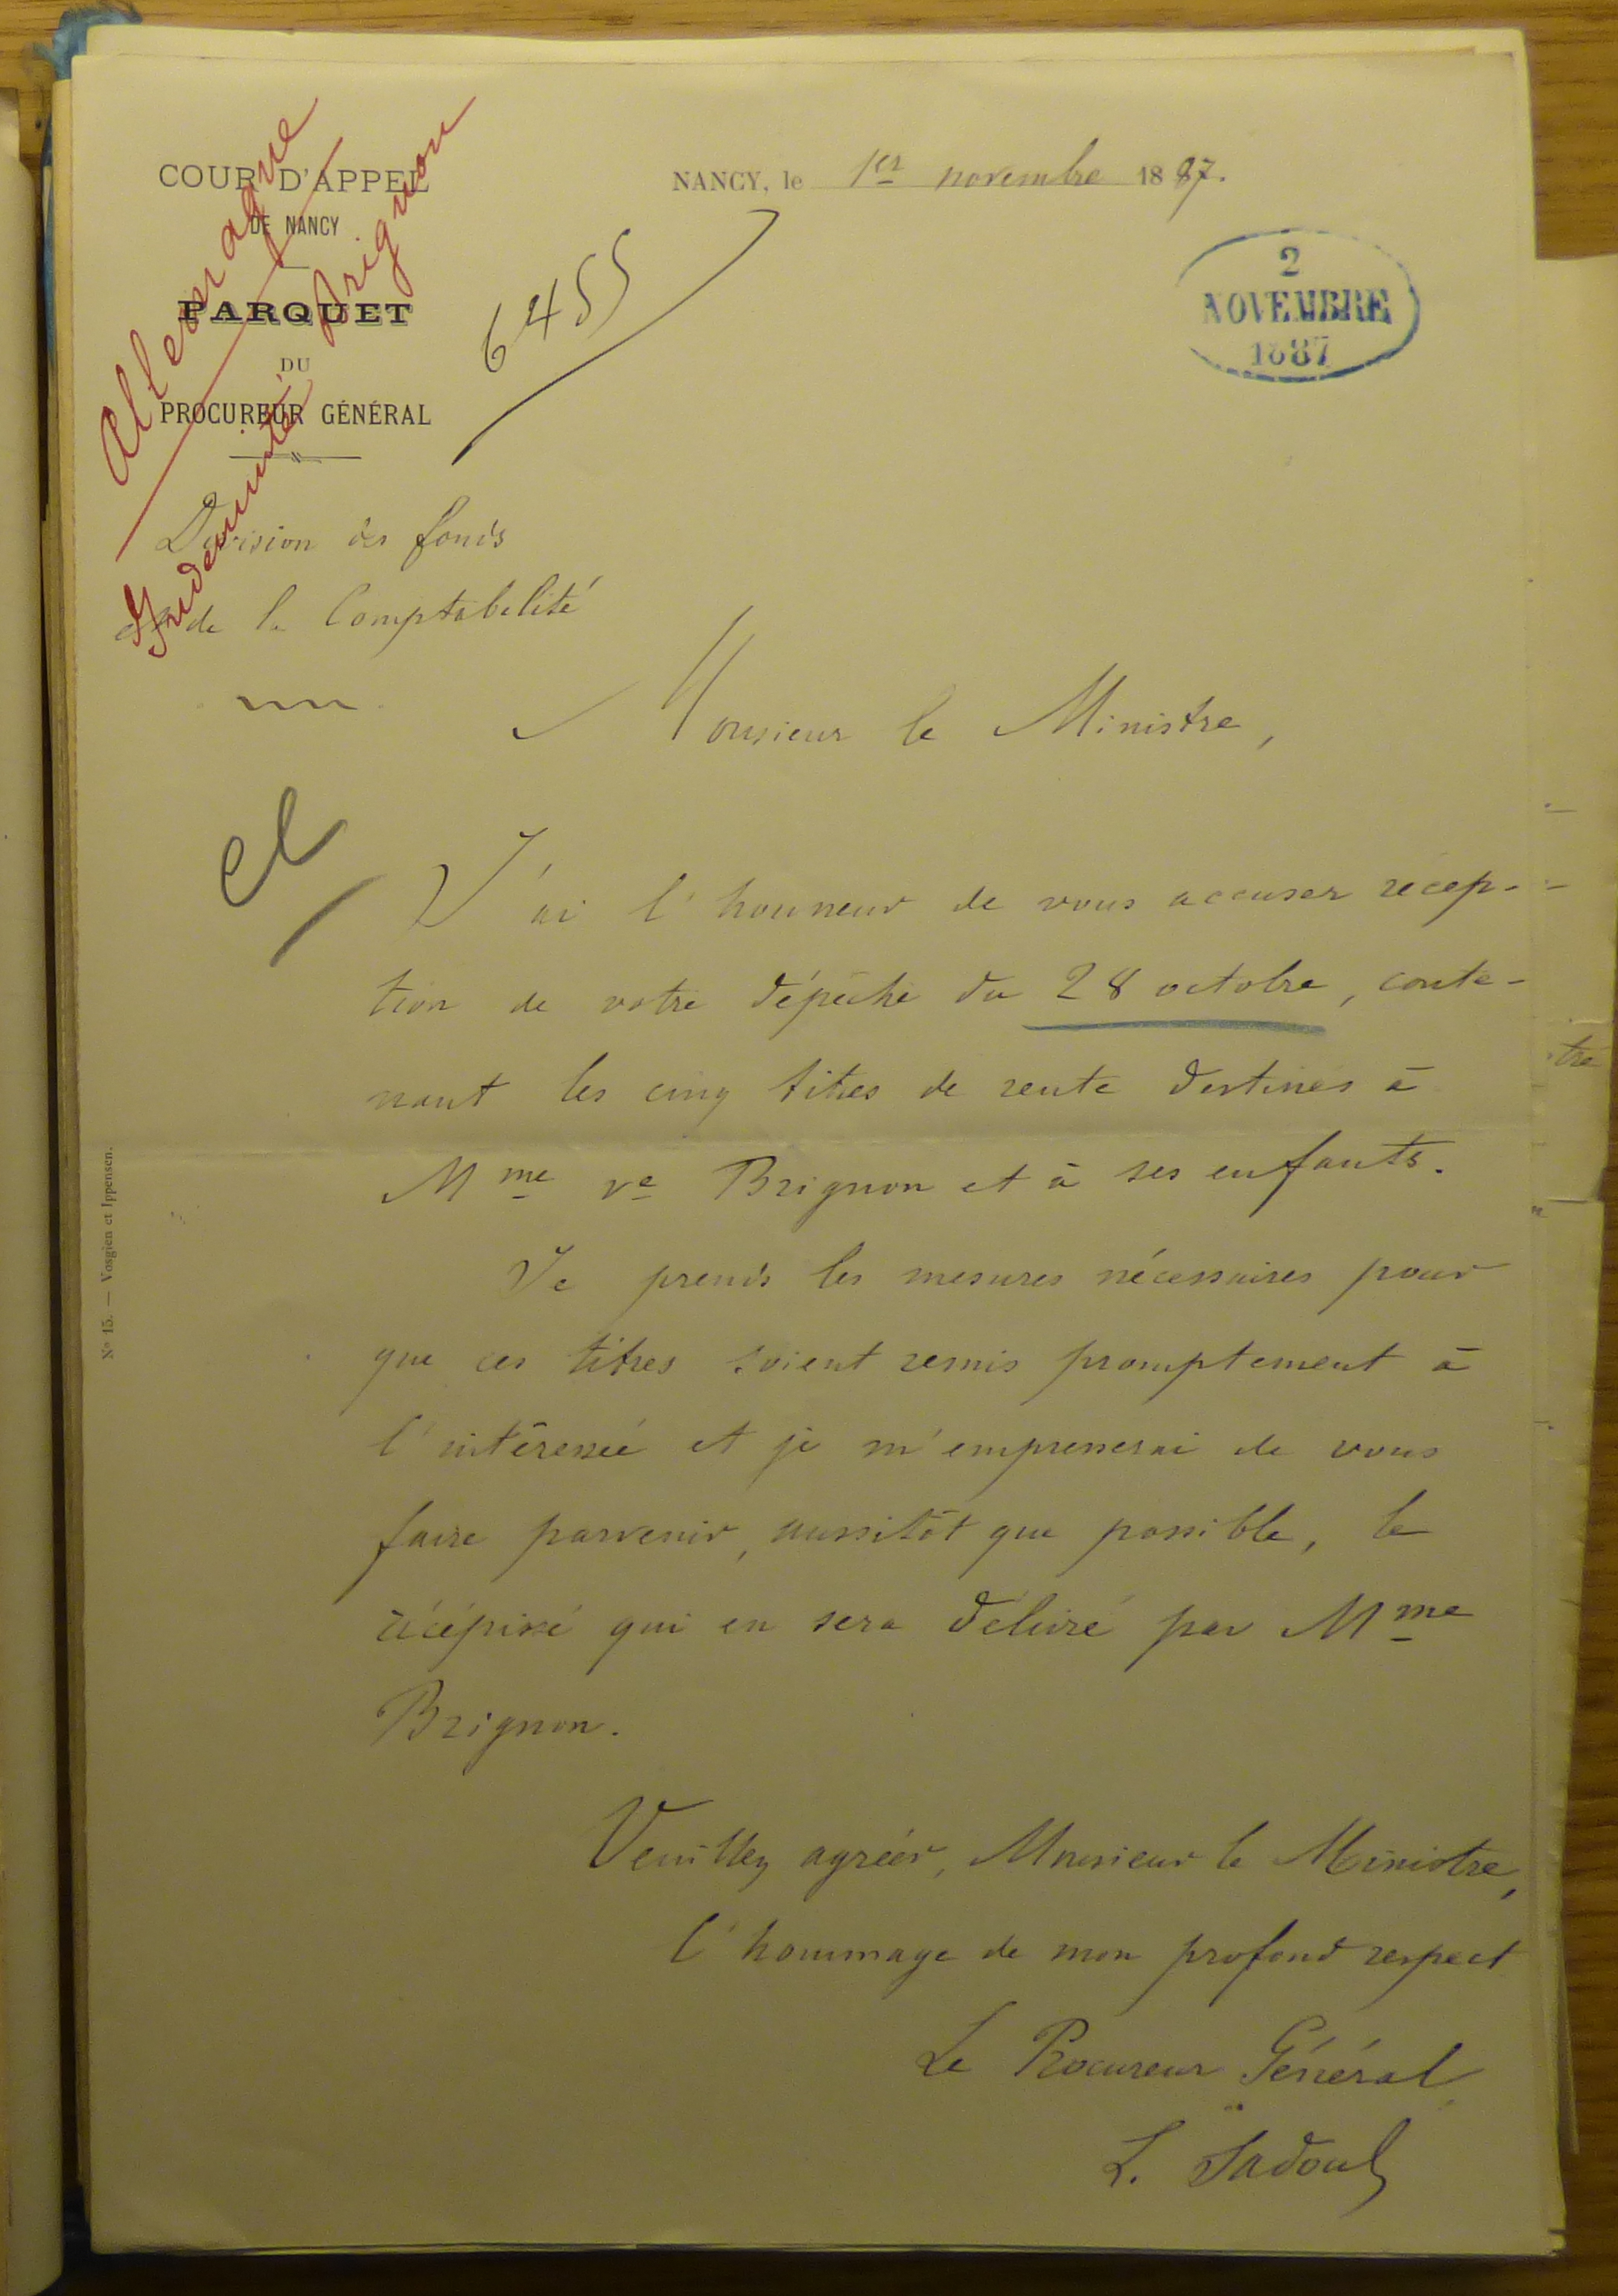 COUR D'APPEL
DE NANCY
PARQUET
DU
PROCUREUR GÉNÉRAL
Allemagne
Indemnité Brignon
6455
NANCY, le 1er novembre 1887.
2
NOVEMBRE
1887
Division des fonds
et de la Comptabilité
Monsieur le Ministre,
J'ai l'honneur de vous accuser récep-
tion de votre dépêche du 28 octobre, conte-
nant les cinq titres de rente destinés à
Mme ve Brignon et à ses enfants.
Je prends les mesures nécessaires pour
que ces titres soient remis promptement à
l'intéressée et je m'empresserai de vous
faire parvenir, aussitôt que possible, le
récépissé qui en sera délivré par Mme
Brignon.
Veuillez agréer, Monsieur le Ministre,
l'hommage de mon profond respect
Le Procureur Général
L. Sadoul
No 15. — Vosgien et Ippensen.
tre